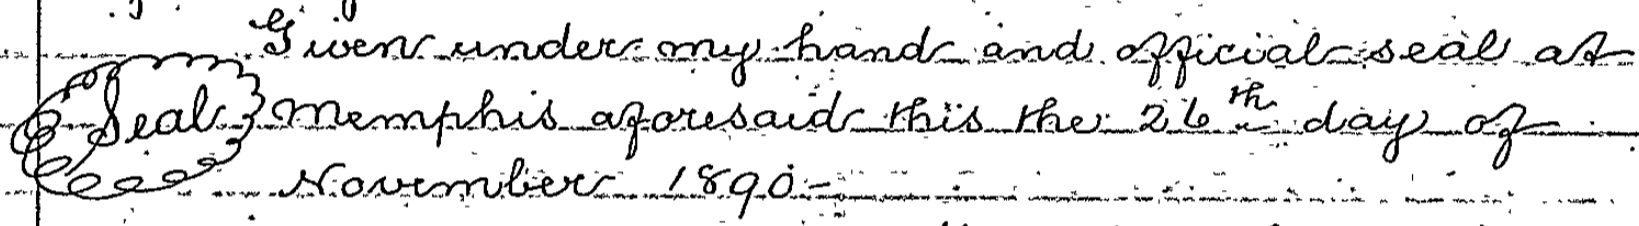 Given under my hand and official seal at
Seal Memphis aforesaid this the 26th day of
November 1890